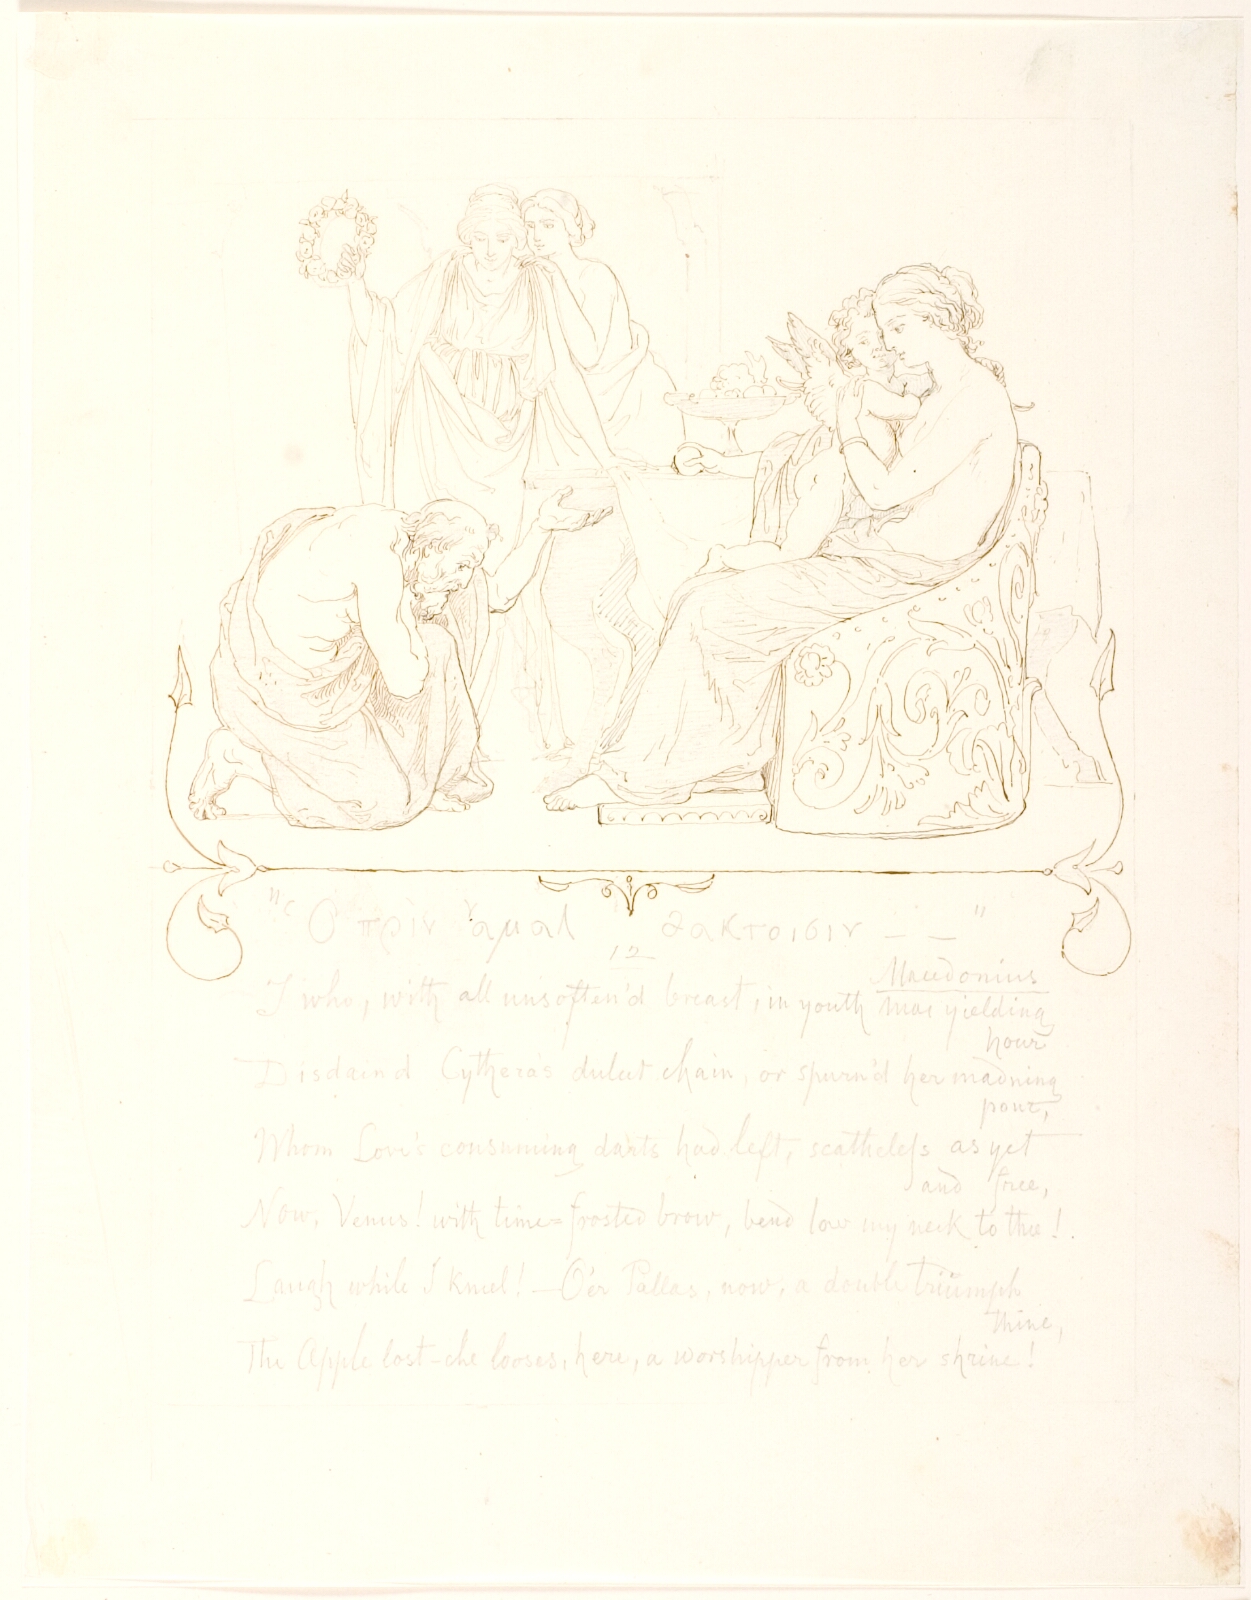 "Ο πριν αμαλθακτοισιν — —"
12
Macedonius
I who, with all unsoften'd breast, in youth mas yielding
hour
Disdain'd Cythera's dulcet chain, or spurn'd her madning
pour,
Whom Love's consuming darts had left, scatheless as yet
and free,
Now, Venus! with time-frosted brow, bend low my neck to thee!
Laugh while I kneel! — O'er Pallas, now, a double triumph
thine,
The Apple lost - she looses, here, a worshipper from her shrine!